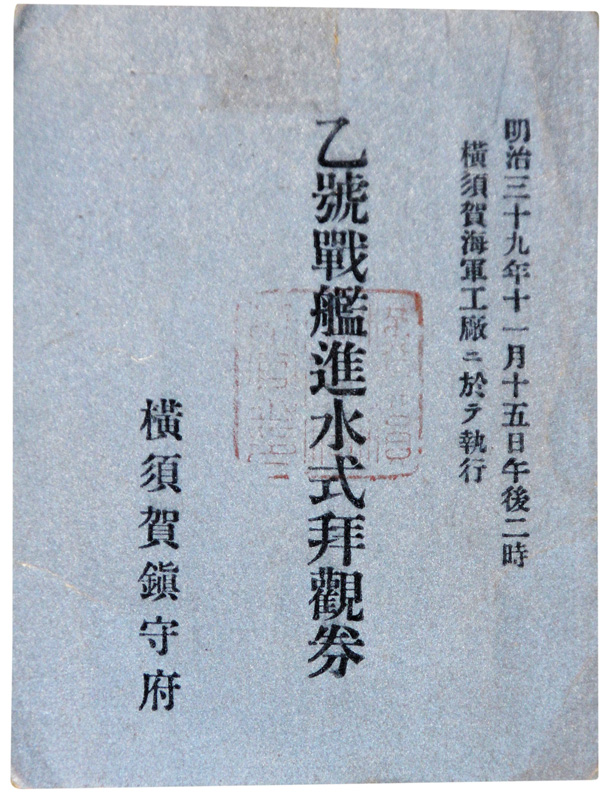 明治三十九年十一月十五日午後二時
橫須賀海軍工廠ニ於テ執行
乙號戰艦進水式拜觀券
橫須賀鎭守府